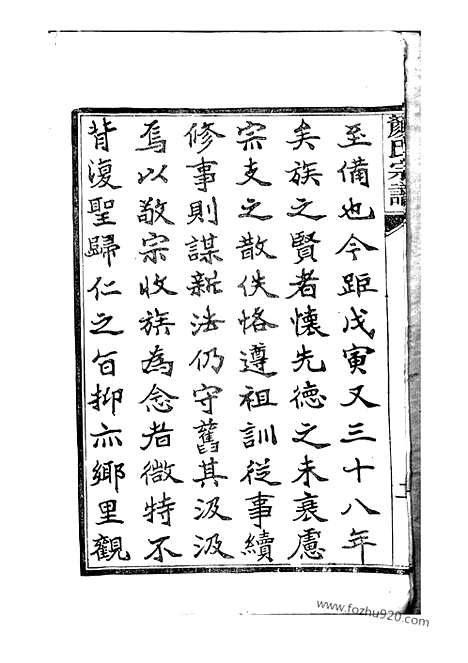 顏氏宗譜
至備也今距戊寅又三十八年
矣族之賢者懷先德之未衰慮
宗支之散佚恪遵祖訓從事續
修事則謀新法仍守舊其汲汲
焉以敬宗收族為念者微特不
背復聖歸仁之旨抑亦鄉里觀
www.fozhu920.com